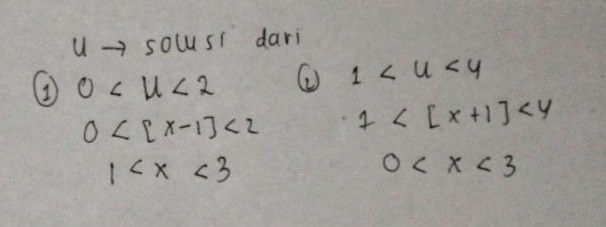 u → solusi dari
① 0 < u < 2
0 < [x-1] < 2
1 < x < 3
② 1 < u < 4
1 < [x+1] < 4
0 < x < 3